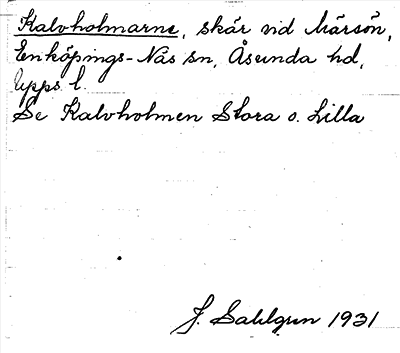 Kalvholmarne, skär vid Märsön,
Enköpings-Näs sn, Åsunda hd,
Upps. l.
Se Kalvholmen Stora o. Lilla
J. Sahlgren 1931